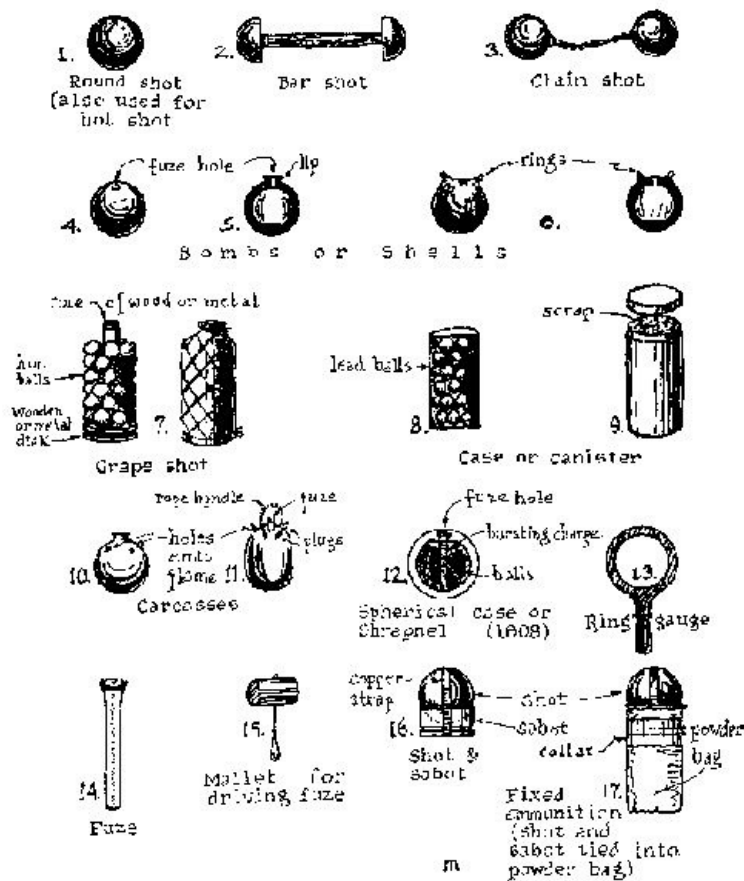 1.
Round shot
(also used for
hot shot
2.
Bar shot
3.
Chain shot
fuze hole
lip
rings
4.
5.
6.
Bombs or Shells
fuze
of [wood or metal
iron
balls
Wooden
or metal
disk
7.
Grape shot
lead balls
8.
scrap
9.
Case or canister
rope handle
fuze
holes
emit
flame
plugs
10.
11.
Carcasses
fuze hole
bursting charge
balls
12.
Spherical case or
Shrapnel (1808)
13.
Ring gauge
14.
Fuze
15.
Mallet for
driving fuze
copper
strap
shot
sabot
16.
Shot &
sabot
collar
powder
bag
17.
Fixed
ammunition
(shot and
sabot tied into
powder bag)
m